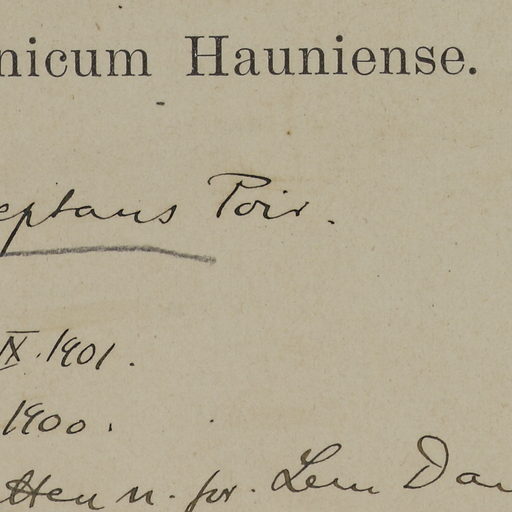 nicum Hauniense.
eptans Poir.
IX. 1901.
1900.
tten n. for. Lem Dan